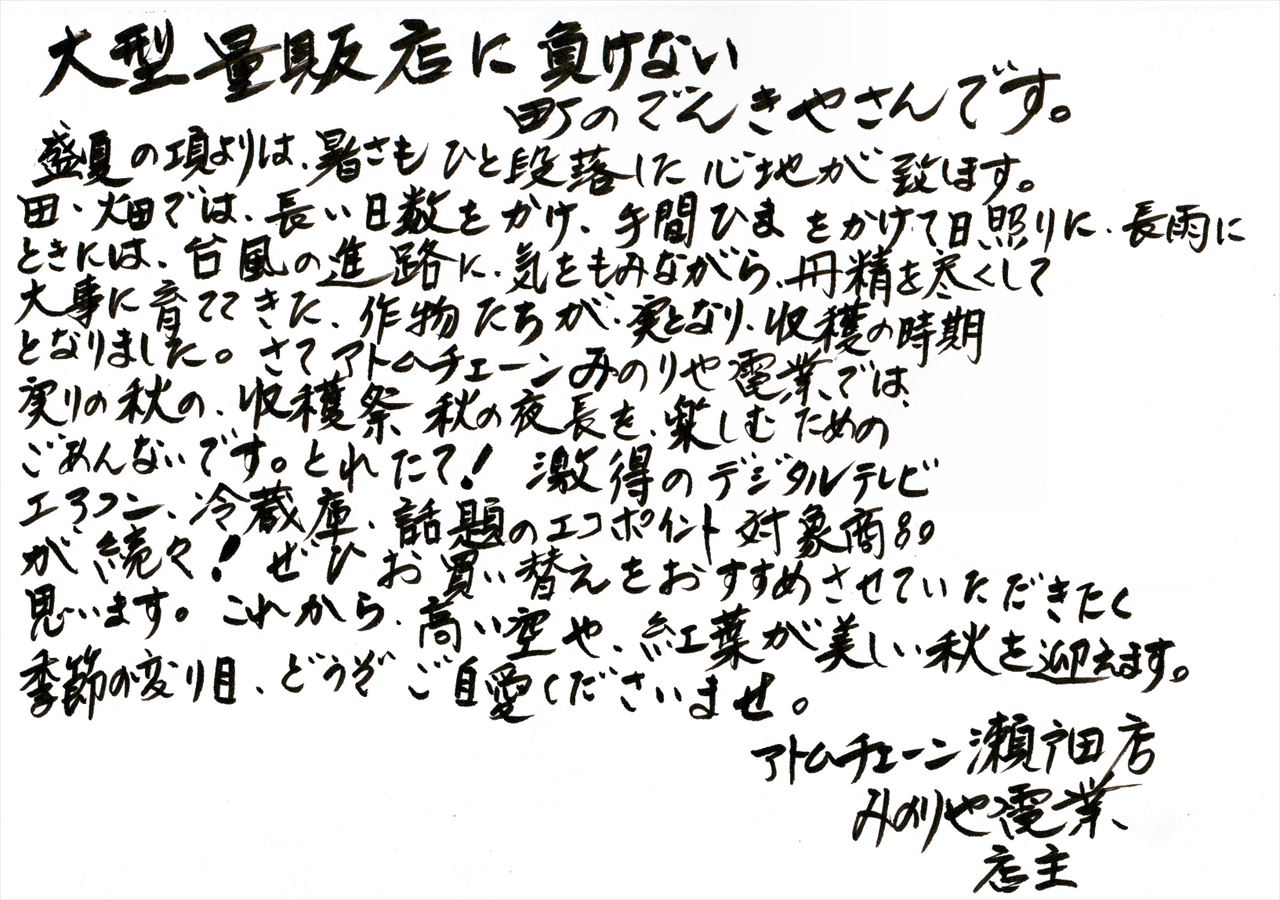 大型量販店に負けない
町のでんきやさんです。
盛夏の項よりは、暑さもひと段落した心地が致ほす。
田・畑では、長い日数をかけ、手間ひまをかけて日照りに、長雨に
ときには、台風の進路に、気をもみながら、丹精を尽くして
大事に育ててきた、作物たちが、実となり、収穫の時期
となりました。さてアトムチェーンみのりや電業では、
実りの秋の、収穫祭 秋の夜長を、楽しむための
ごあんないです。とれたて! 激得のデジタルテレビ
エアコン、冷蔵庫、話題のエコポイント対象商品
が続々!ぜひお買い替えをおすすめさせていただきたく
思います。これから、高い空や、紅葉が美しい秋を迎えます。
季節の変り目、どうぞご自愛くださいませ。
アトムチェーン瀬戸田店
みのりや電業
店主